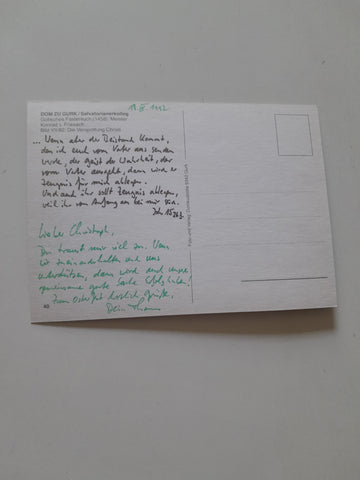 19. IV. 1992
DOM ZU GURK / Salvatorianerkolleg
Gotisches Fastentuch (1458) Meister
Konrad v. Friesach,
Bild VII/82: Die Verspottung Christi
... Wenn aber der Beistand kommt,
den ich euch vom Vater aus senden
werde, der Geist der Wahrheit, der
vom Vater ausgeht, dann wird er
Zeugnis für mich ablegen.
Und auch ihr sollt Zeugnis ablegen,
weil ihr von Anfang an bei mir seid.
Joh 15,26f.
Lieber Christoph,
Du traust mir viel zu. Wenn
wir zueinanderhalten und uns
unterstützen, dann wird auch unsere
gemeinsame gute Sache Erfolg haben!
Zum Osterfest herzlich grüßt,
Dein Thomas